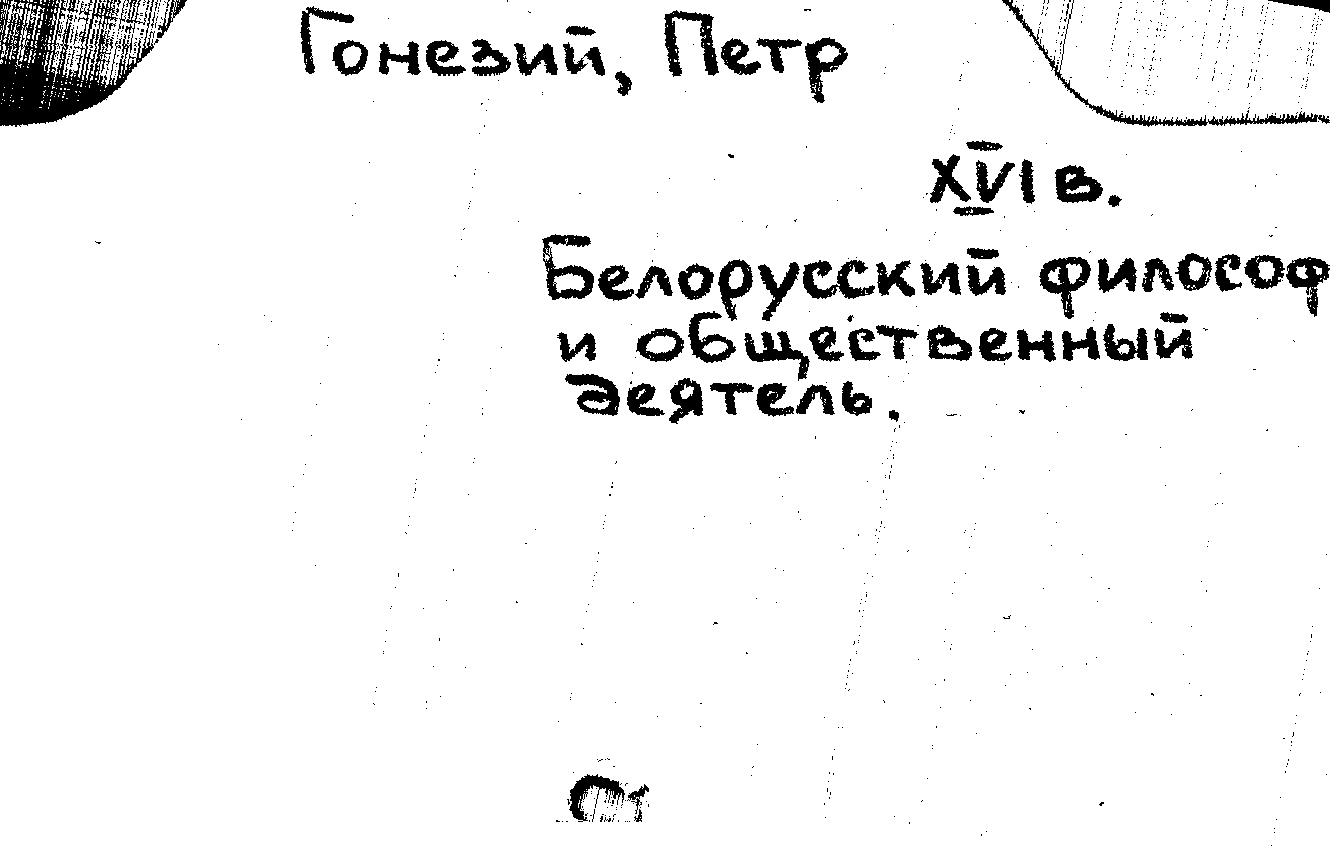 Гонезий, Петр
XVI в.
Белорусский философ
и общественный
деятель.